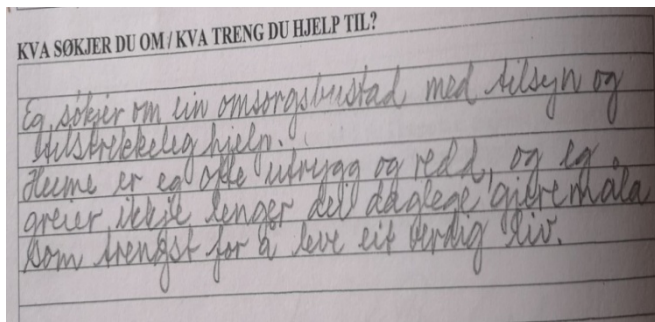 KVA SØKJER DU OM / KVA TRENG DU HJELP TIL?
Eg søkjer om ein omsorgsbustad med tilsyn og
tilstrekkeleg hjelp.
Heime er eg ofte utrygg og redd, og eg
greier ikkje lenger dei daglege gjeremåla
som trengst for å leve eit verdig liv.